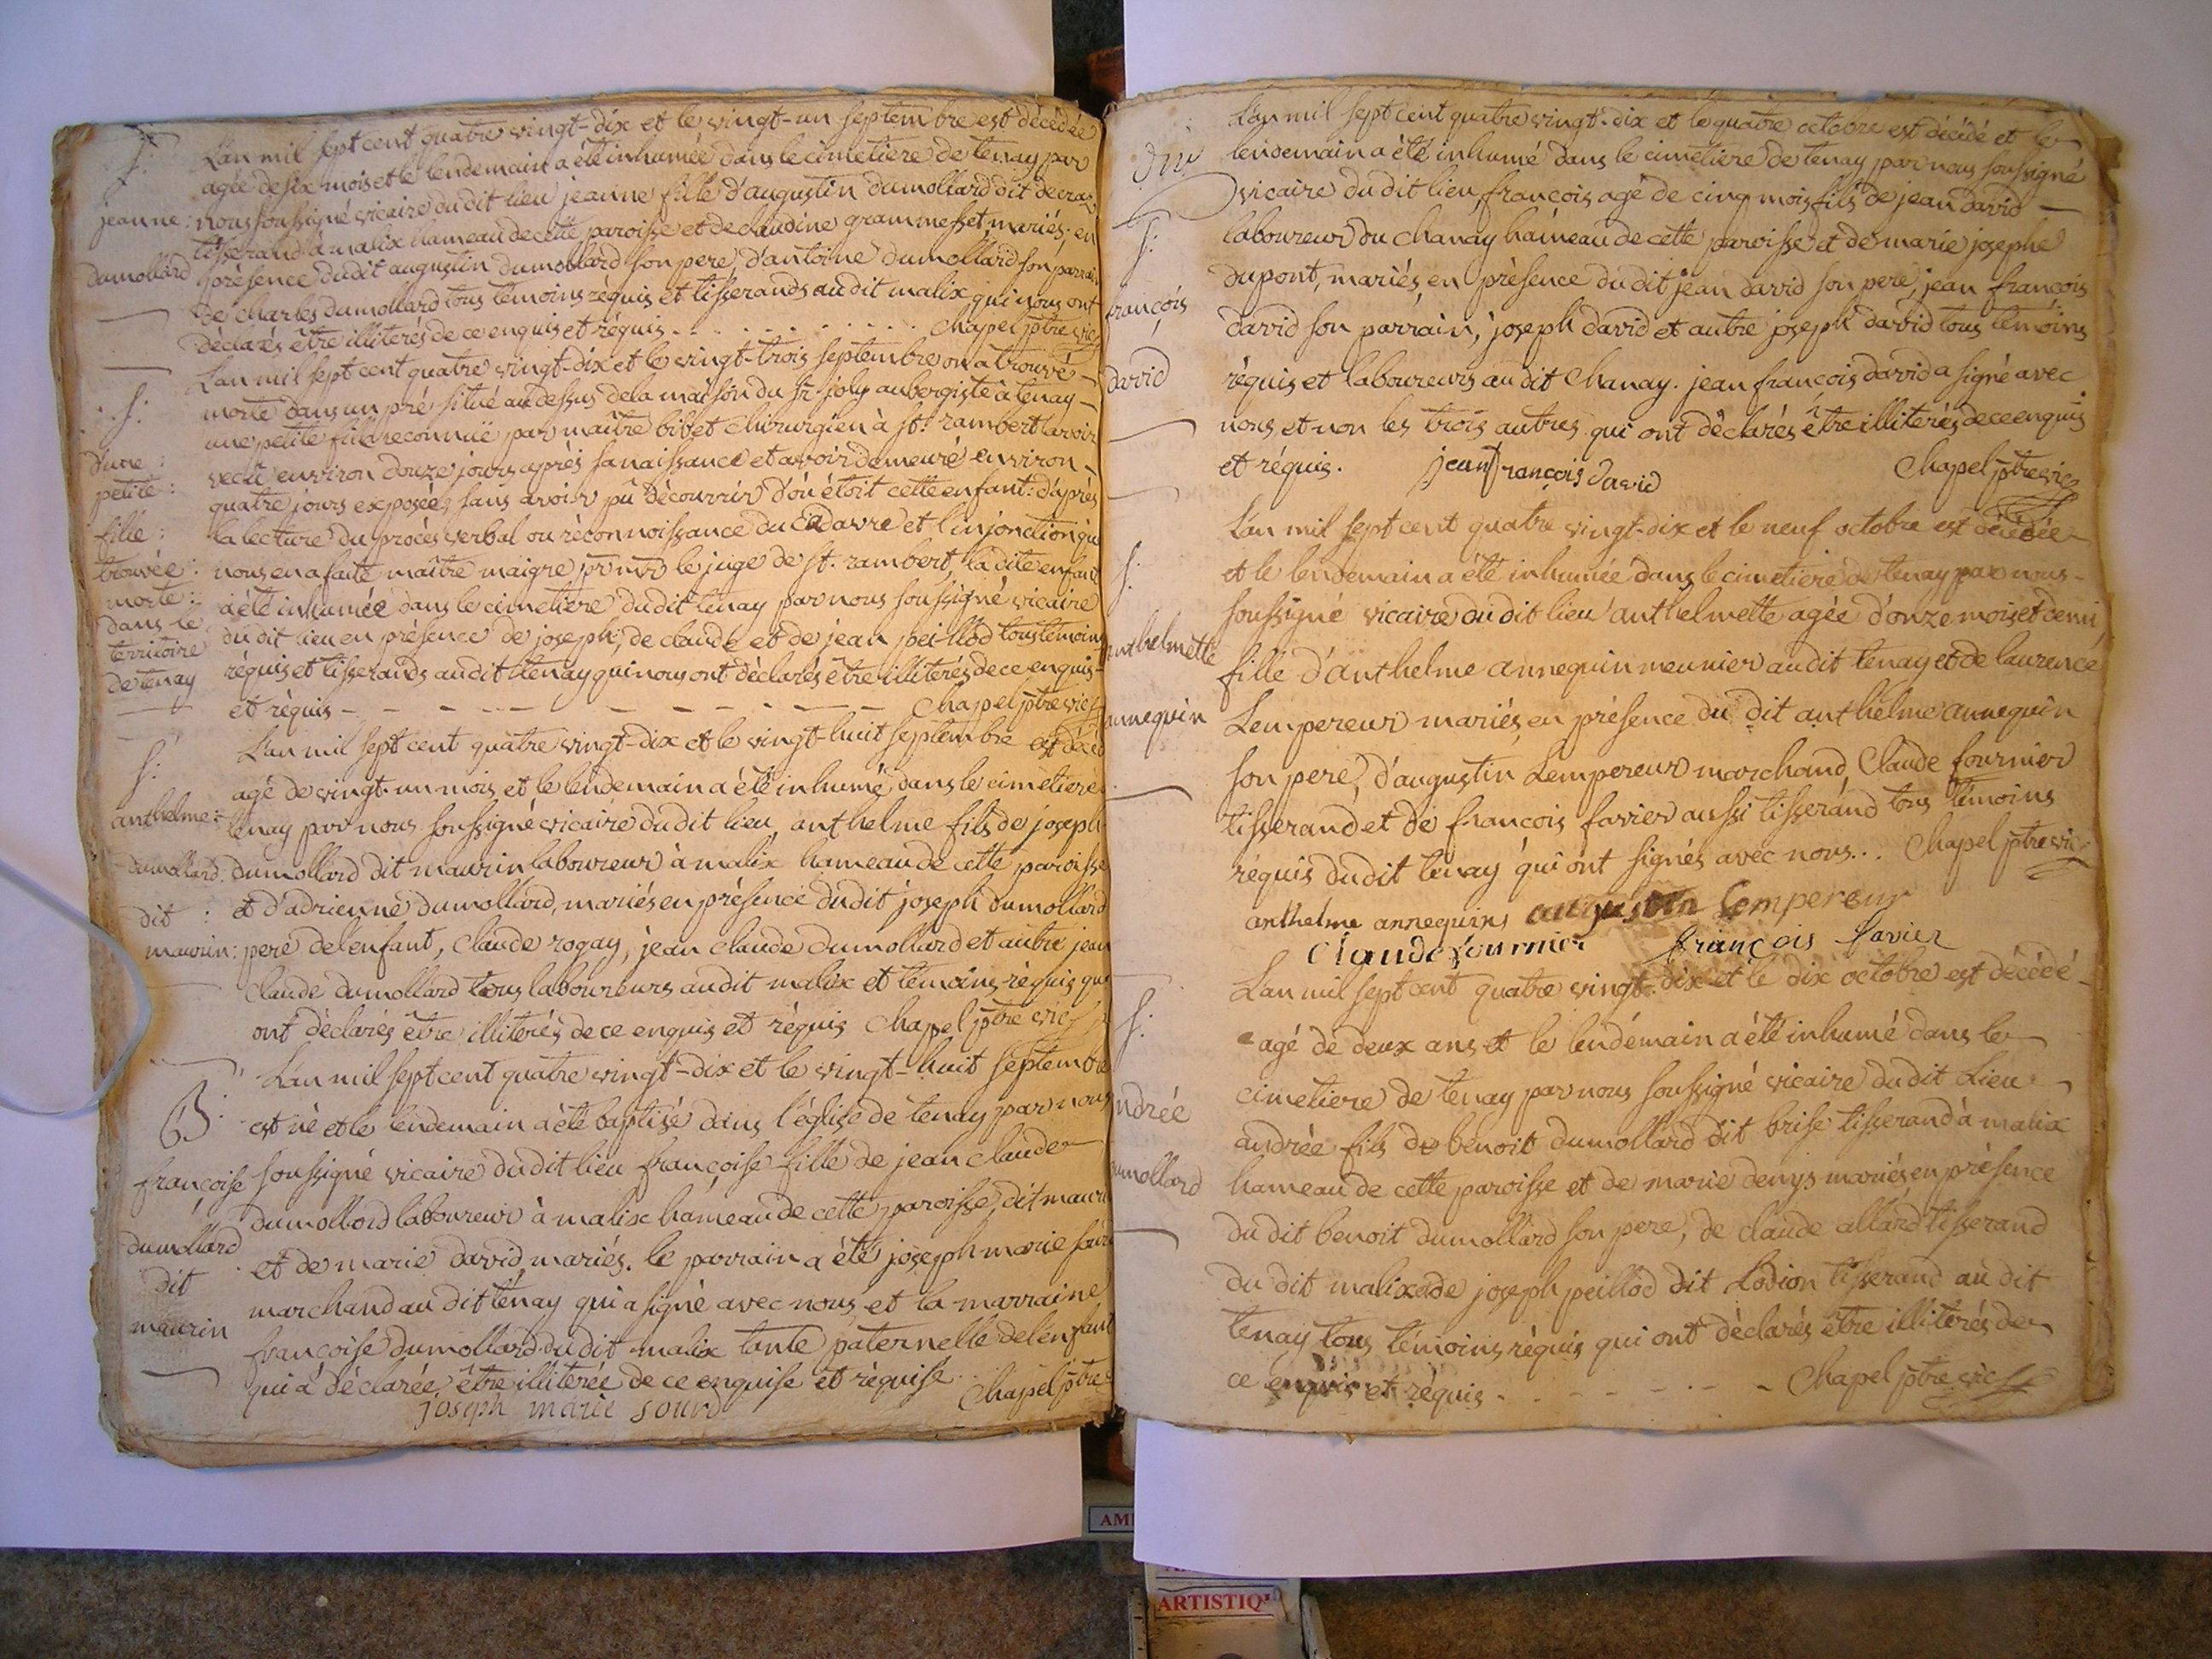 S:
L'an mil sept cent quatre vingt-dix et le vingt-un septembre est décédée
agée de six mois et le lendemain a été inhumée dans le cimetiere de tenay par
jeanne : nous soussigné vicaire du dit lieu jeanne fille d'augustin dumollard dit
tisserand à malix hameau de cette paroisse et de claudine grammesset, mariés; en
dumollard présence dudit augustin dumollard son pere, d'antoine dumollard son parrain
de charles dumollard tous témoins réquis et tisserands au dit malix qui nous ont
déclarés être illiterés de ce enquis et réquis. Chapel ptre vic
L'an mil sept cent quatre vingt-dix et le vingt-trois septembre on a trouvé
S: morte dans un pré situé au dessus de la maison du sr. joly aubergiste à tenay
une petite fille reconnuë par maître bibet chirurgien à st. rambert avoir
d'une : vecû environ douze jours après sa naissance et avoir demeuré environ
petite : quatre jours exposée, sans avoir pû découvrir d'où étoit cette enfant: d'après
fille : la lecture du procès verbal ou réconnoissance du cadavre et l'injonction qu
trouvée : nous en a faite maître maigre le juge de st. rambert, la dite enfant
morte : a été inhumée dans le cimetiere dudit tenay par nous soussigné vicaire
dans le du dit lieu en présence de joseph, de claude et de jean peillod tous témoins
territoire réquis et tisserands au dit tenay qui nous ont déclarés être illiterés de ce enquis
de tenay et réquis - Chapel ptre vic
S: L'an mil sept cent quatre vingt-dix et le vingt-huit septembre est décé
agé de vingt-un mois et le lendemain a été inhumé dans le cimetiere
anthelme : tenay par nous soussigné vicaire dudit lieu anthelme fils de joseph
dumollard. dumollard dit maurin laboureur à malix hameau de cette paroisse
dit : et d'adrienne dumollard, mariés en présence dudit joseph dumollard
maurin : pere de l'enfant, claude rogay, jean claude dumollard et autre jean
claude dumollard tous laboureurs au dit malix et témoins réquis qui
ont déclarés être illiterés de ce enquis et réquis Chapel ptre vic
L'an mil sept cent quatre vingt-dix et le vingt-huit septembre
B: est né et le lendemain a été baptisé dans l'église de tenay par nous
françoise soussigné vicaire dudit lieu françoise fille de jean claude
dumollard dumollard laboureur à malix hameau de cette paroisse, dit mauri
dit et de marie david mariés. le parrain a été joseph marie sourd
marchand au dit tenay qui a signé avec nous et la marraine
maurin françoise dumollard du dit malix tante paternelle de l'enfant
qui a déclarée être illiterée de ce enquise et réquise. Chapel ptre
joseph marie sourd
L'an mil sept cent quatre vingt-dix et le quatre octobre est décédé et le
lendemain a été inhumé dans le cimetiere de tenay par nous soussigné
vicaire du dit lieu, françois agé de cinq mois fils de jean david
S: laboureur du chanay hameau de cette paroisse et de marie josephe
françois dupont, mariés en présence du dit jean david son pere, jean françois
david son parrain, joseph david et autre joseph david tous témoins
david réquis et laboureurs au dit Chanay. jean françois david a signé avec
nous et non les trois autres qui ont déclarés être illiterés de ce enquis
et réquis. jean françois david Chapel ptre vic
L'an mil sept cent quatre vingt-dix et le neuf octobre est décédée
S: et le lendemain a été inhumée dans le cimetiere de tenay par nous
soussigné vicaire du dit lieu anthelmette agée d'onze mois et demi,
anthelmette fille d'anthelme annequin meunier au dit tenay et de laurence
annequin Lempereur mariés, en présence du dit anthelme annequin
son pere, d'augustin Lempereur marchand, Claude fournier
tisserand et de françois favier aussi tisserand tous témoins
réquis dudit tenay qui ont signés avec nous... Chapel ptre vic
anthelme annequin augustin Lempereur
Claude fournier françois favier
S: L'an mil sept cent quatre vingt-dix et le dix octobre est décédé
agé de deux ans et le lendemain a été inhumé dans le
ndrée cimetiere de tenay par nous soussigné vicaire du dit Lieu
andrée fils de benoit dumollard dit brise tisserand à malix
umollard hameau de cette paroisse et de marie denys mariés en présence
du dit benoit dumollard son pere, de claude allard tisserand
du dit malix de joseph peillod dit Lodion tisserand au dit
tenay tous témoins réquis qui ont déclarés être illiterés de
ce enquis et réquis - Chapel ptre vic
AM
ARTISTIQ